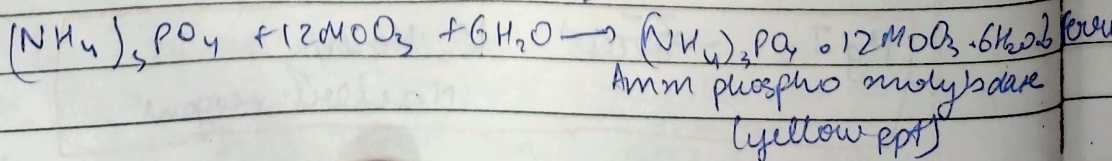 (NH₄)₃PO₄ + 12MoO₃ + 6H₂O → (NH₄)₃PO₄ · 12MoO₃ · 6H₂O
Amm phospho molybdate
(yellow ppt)